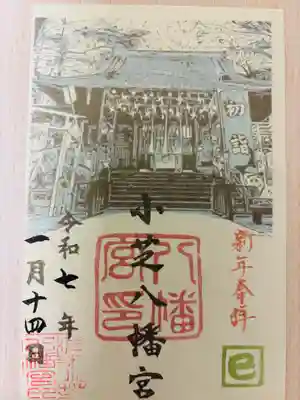 初詣
新年奉拝
小芝八幡宮
八幡宮印
令和七年
一月十四日
巳